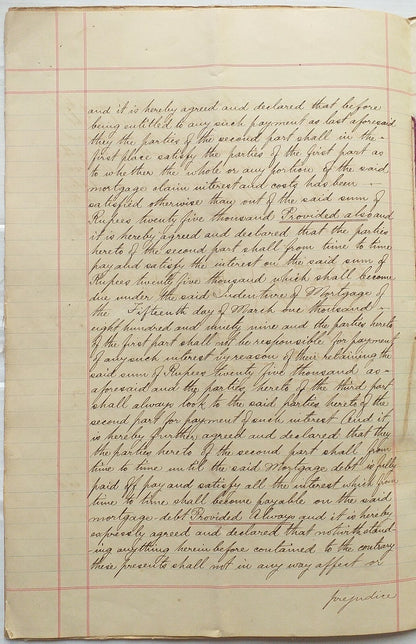 and it is hereby agreed and declared that before
being entitled to any such payment as last aforesaid
they the parties of the second part shall in the -
first place satisfy the parties of the first part as
to whether the whole or any portion of the said
mortgage claim interest and costs has been -
satisfied otherwise than out of the said sum of
Rupees twenty five thousand Provided also and
it is hereby agreed and declared that the parties
hereto of the second part shall from time to time
pay and satisfy the interest on the said sum of
Rupees twenty five thousand which shall become
due under the said Indenture of Mortgage of
the Fifteenth day of March one thousand -
eight hundred and ninety nine and the parties hereto
of the first part shall not be responsible for payment
of any such interest by reason of their retaining the
said sum of Rupees twenty five thousand as -
aforesaid and the parties hereto of the third part
shall always look to the said parties hereto of the
second part for payment of such interest And it
is hereby further agreed and declared that they
the parties hereto of the second part shall from
time to time until the said Mortgage debt is fully
paid off pay and satisfy all the interest which from
time to time shall become payable on the said
mortgage-debt Provided Always and it is hereby
expressly agreed and declared that notwithstand-
-ing anything herein before contained to the contrary
these presents shall not in any way affect or
prejudice